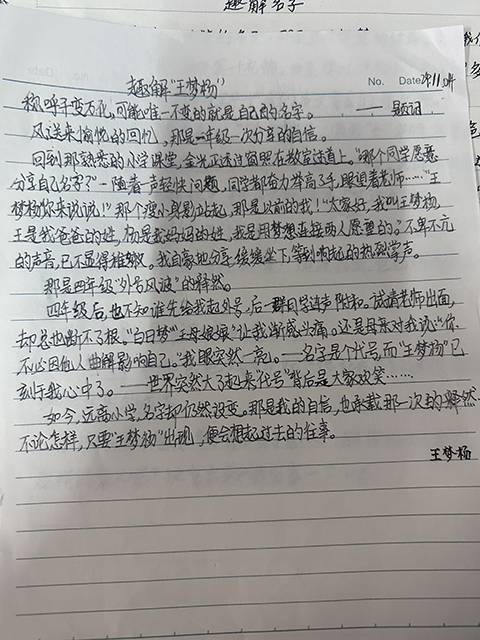 趣解名字
趣解“王梦杨”
No.
Date 24.11.
称呼千变万化,可能唯一不变的就是自己的名字。
——题词
风送来愉悦的回忆,那是一年级一次分享的自信。
回到那熟悉的小学课堂,金光正透过窗照在教室过道上。“哪个同学愿意
分享自己名字?”一随着声轻快问题,同学都奋力举高了手,瞭望着老师……“王
梦杨你来说说!”那个瘦小身影站起,那是以前的我!“大家好,我叫王梦杨,
王是我爸爸的姓,杨是我妈妈的姓,我是用梦想连接两人愿望的。”不卑不亢
的声音,已不显得稚嫩。我自豪地分享,缓缓坐下,等到响起的热烈掌声。
那是四年级“外号风波”的释然。
四年级后,也不知谁先给我起外号,后一群同学连声附和。试请老师出面,
却总也断不了根。“白日梦”“王母娘娘”让我渐感头痛。还是母亲对我说:“你
不必因他人曲解影响自己。”我眼突然一亮。——名字是个代号,而“王梦杨”已
刻于我心中了。——世界突然大了起来“代号”背后是大家欢笑……
如今,远离小学,名字却仍然没变。那是我的自信,也承载那一次的释然
不论怎样,只要“王梦杨”出现,便会想起过去的往事。
王梦杨